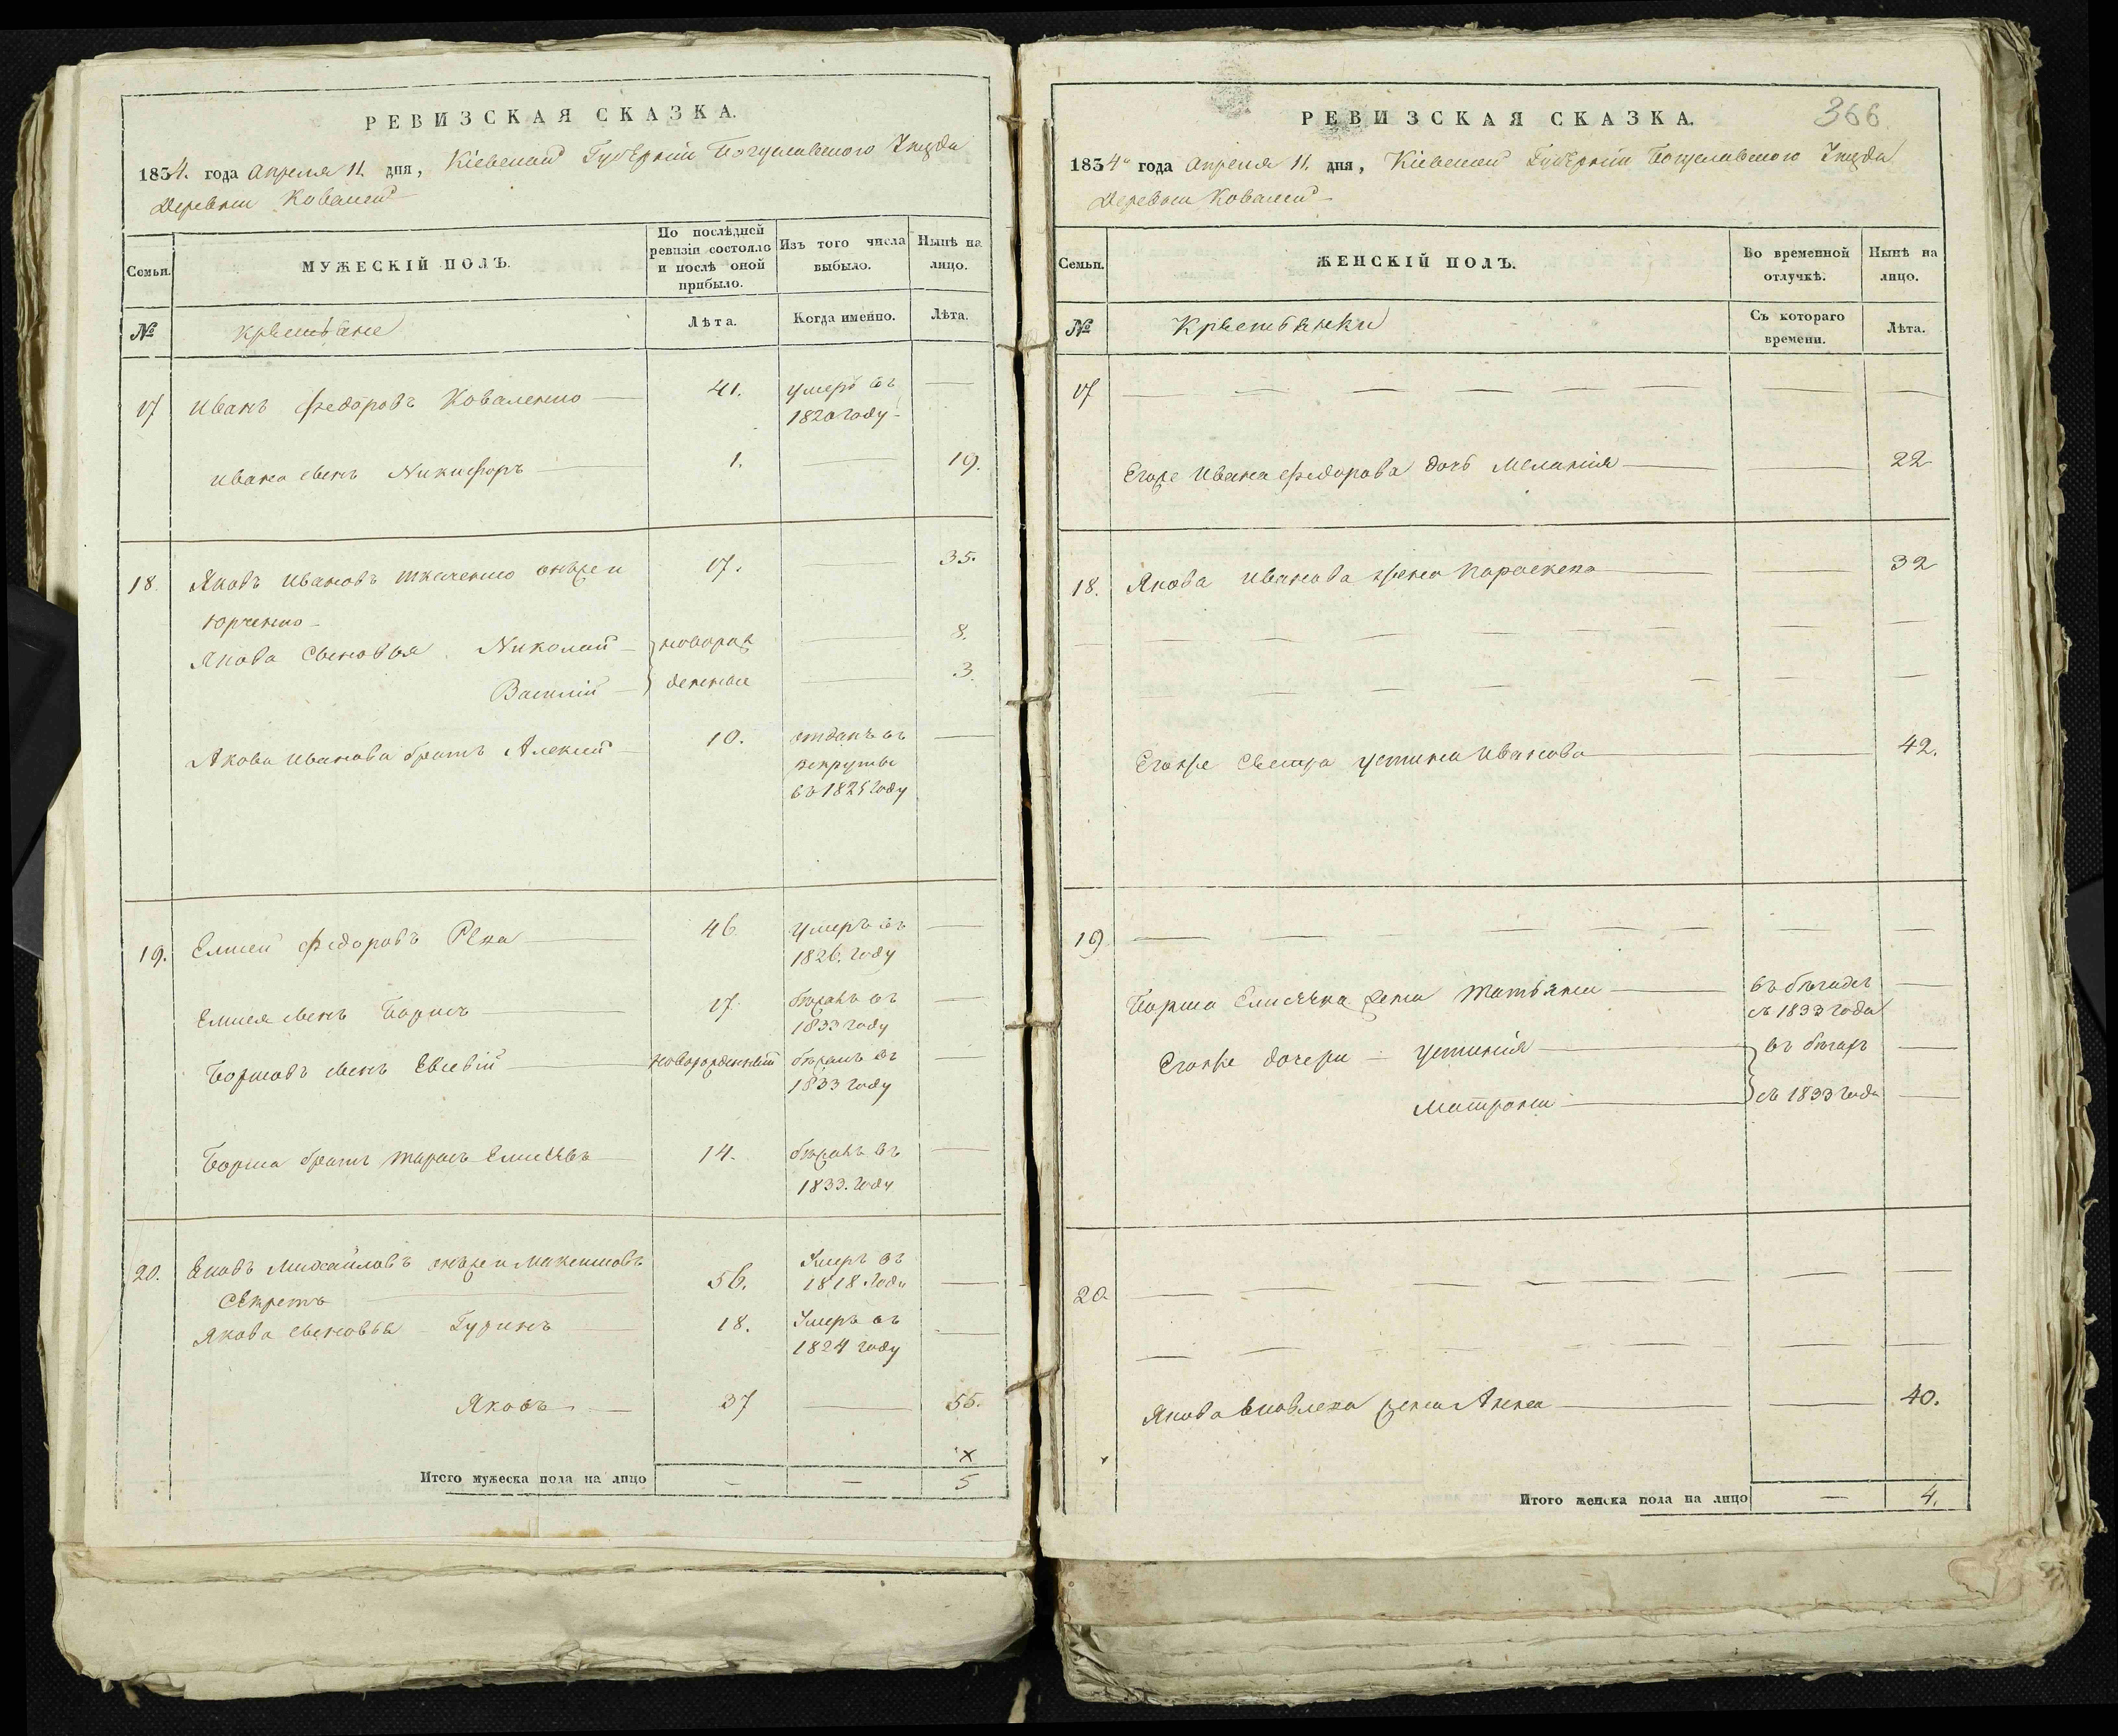 РЕВИЗСКАЯ СКАЗКА.
1834. года Апреля 11. дня, Кіевской Губерніи Богуславского Уезда
Деревни Ковалей
Семьи. МУЖЕСКІЙ ПОЛЪ. По послѣдней ревизіи состояло и послѣ оной прибыло. Изъ того числа выбыло. Нынѣ на лицо.
№ Крестьяне Лѣта. Когда именно. Лѣта.
17 Иванъ Федоровъ Коваленко 41. умеръ въ
1820 году
Ивана сынъ Никифоръ 1. 19.
18. Яковъ Ивановъ Ткаченко онъже и 17. 35.
Юрченко
Якова сыновья Николай новорож 8.
Василій денные 3.
Якова Иванова братъ Алексей 10. отданъ въ
рекруты
въ 1825 году
19. Елисей Федоровъ 46 умеръ въ
1826. году
Елисея сынъ Борисъ 17. бѣжалъ въ
1833 году
Борисовъ сынъ Евсевій новорожденный бѣжалъ въ
1833 году
Бориса братъ Тарасъ Елисѣевъ 14. бѣжалъ въ
1833. году
20. Яковъ Михайловъ онъже и Максимовъ 56. Умеръ въ
Секретъ 1818 Году
Якова сыновья Гуринъ 18. Умеръ въ
1824 году
Яковъ 37 55.
x
Итого мужеска пола на лицо 5
РЕВИЗСКАЯ СКАЗКА. 366
1834 года Апреля 11. дня, Кіевской Губерніи Богуславского Уезда
Деревни Ковалей
Семьи. ЖЕНСКІЙ ПОЛЪ. Во временной отлучкѣ. Нынѣ на лицо.
№ Крестьянки Съ котораго времени. Лѣта.
17
Егоже Ивана Федорова дочь Меланія 22
18. Якова Иванова жена Параскева 32
Егоже сестра Устина Иванова 42.
19
Бориса Елисѣева жена Татьяна въ бѣгахъ
съ 1833 года
Егоже дочери Устинія въ бѣгахъ
Матрона съ 1833 года
20
Якова Яковлева жена Анна 40.
Итого женска пола на лицо 4.